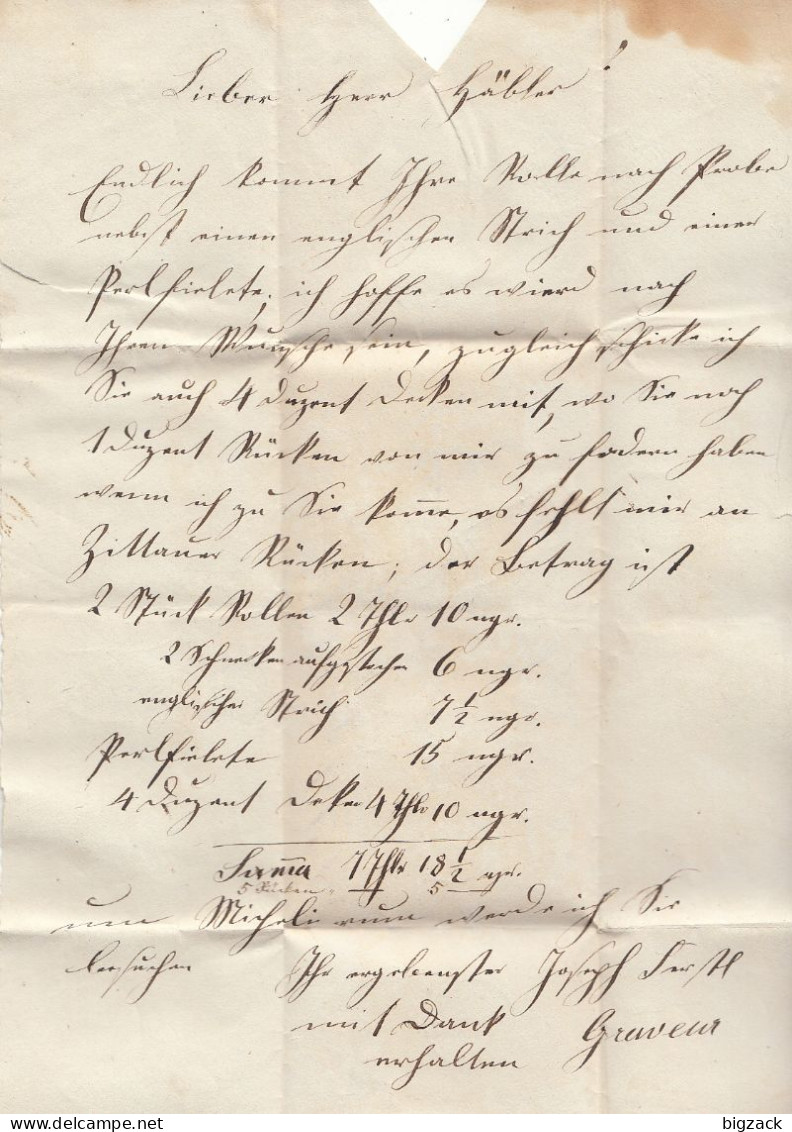 Lieber Herr Häbler!
Endlich kommt Ihre Rolle nach Probe
nebst einen englischen Strich und einer
Perlfielete, ich hoffe es wierd nach
Ihren Wunsche sein, zugleich schicke ich
Sie auch 4 Duzent Decken mit, wo Sie noch
1 Duzent Rücken von mir zu fodern haben
wenn ich zu Sie kome, es fehlt mir an
Zittauer Rücken; der Betrag ist
2 Stück Rollen 2 Thlr 10 ngr.
2 Schnecken aufgestochen 6 ngr.
englischer Strich 7 1/2 ngr.
Perlfielete 15 ngr.
4 Duzent Deken 4 Thlr 10 ngr.
Sama 7 Thlr 18 1/2 ngr.
5 Rücken 5
um Micheli rum werde ich Sie
besuchen Ihr ergebenster Joseph Ferstl
mit Dank Graveur
erhalten
bigzack